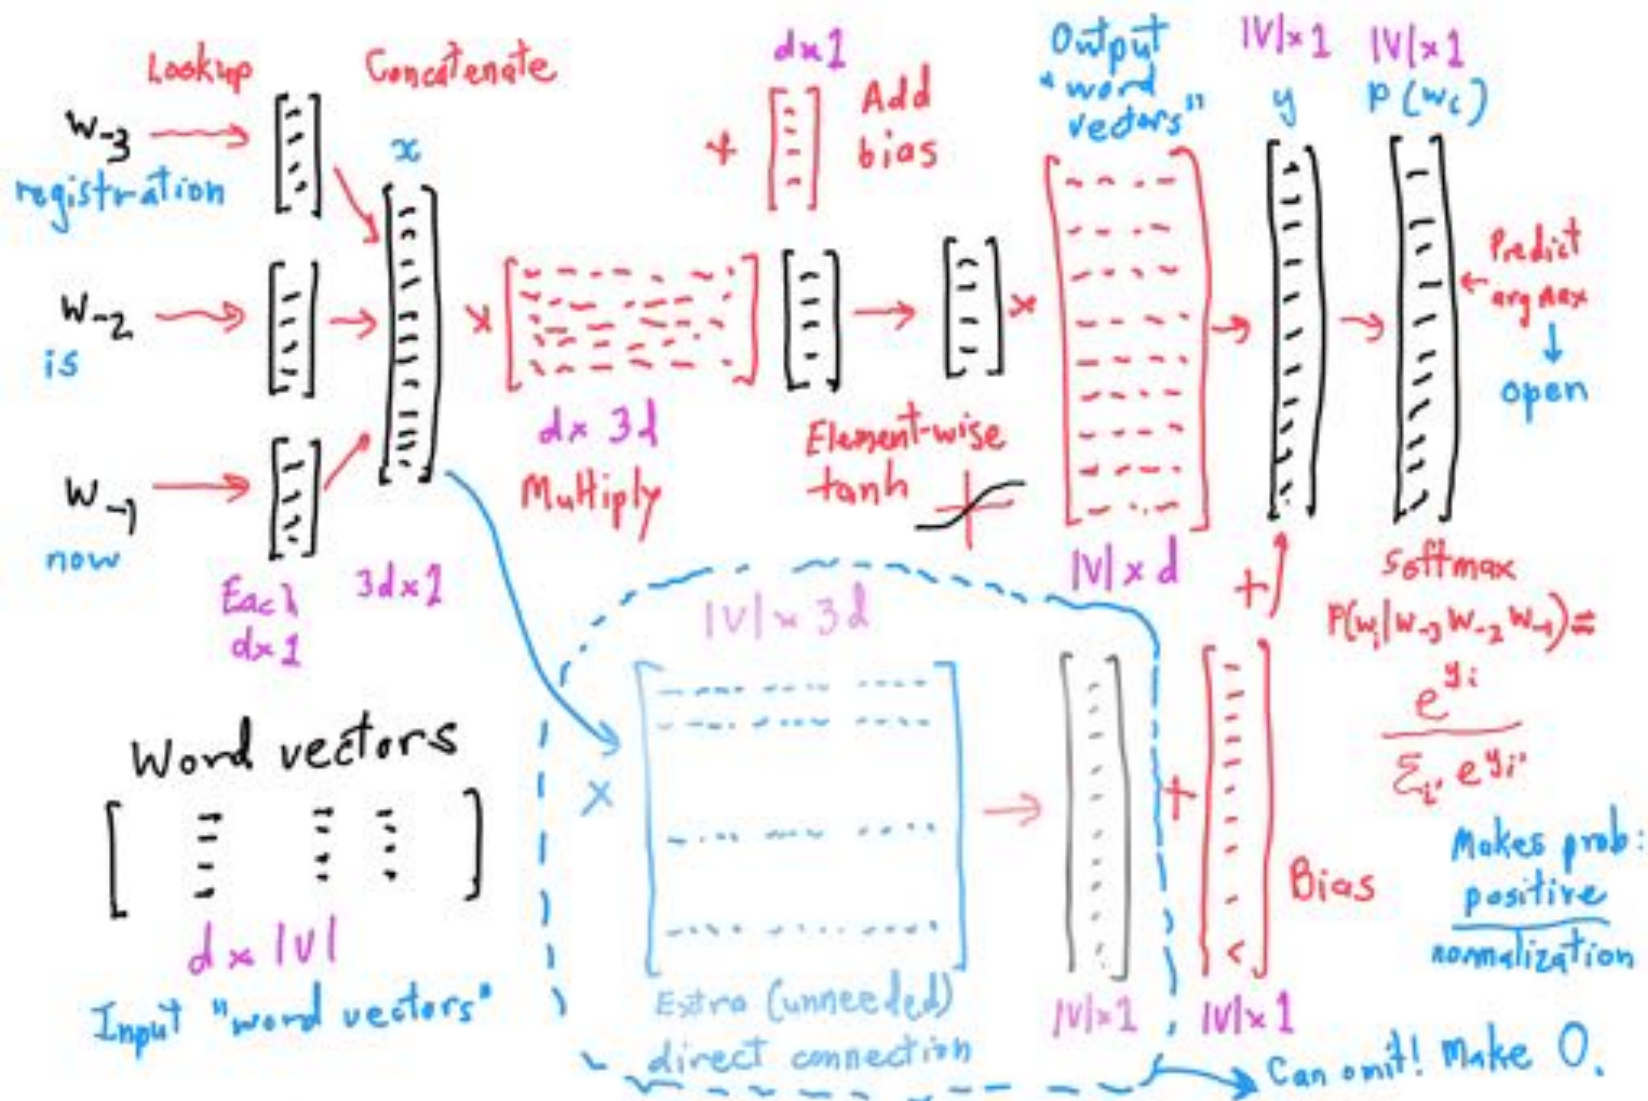 Lookup
Concatenate
w-3
registration
w-2
is
w-1
now
Each
d×1
x
3d×1
×
d × 3d
Multiply
d×1
+
Add
bias
Element-wise
tanh
×
Output
"word
vectors"
|V| × d
|V|×1
y
|V|×1
P(wi)
Predict
arg max
open
softmax
P(wi|w-3 w-2 w-1) =
e^yi
Σi' e^yi'
Makes prob:
positive
normalization
Word vectors
d × |V|
Input "word vectors"
|V| × 3d
×
Extra (unneeded)
direct connection
|V|×1
+
+
Bias
|V|×1
Can omit! Make 0.